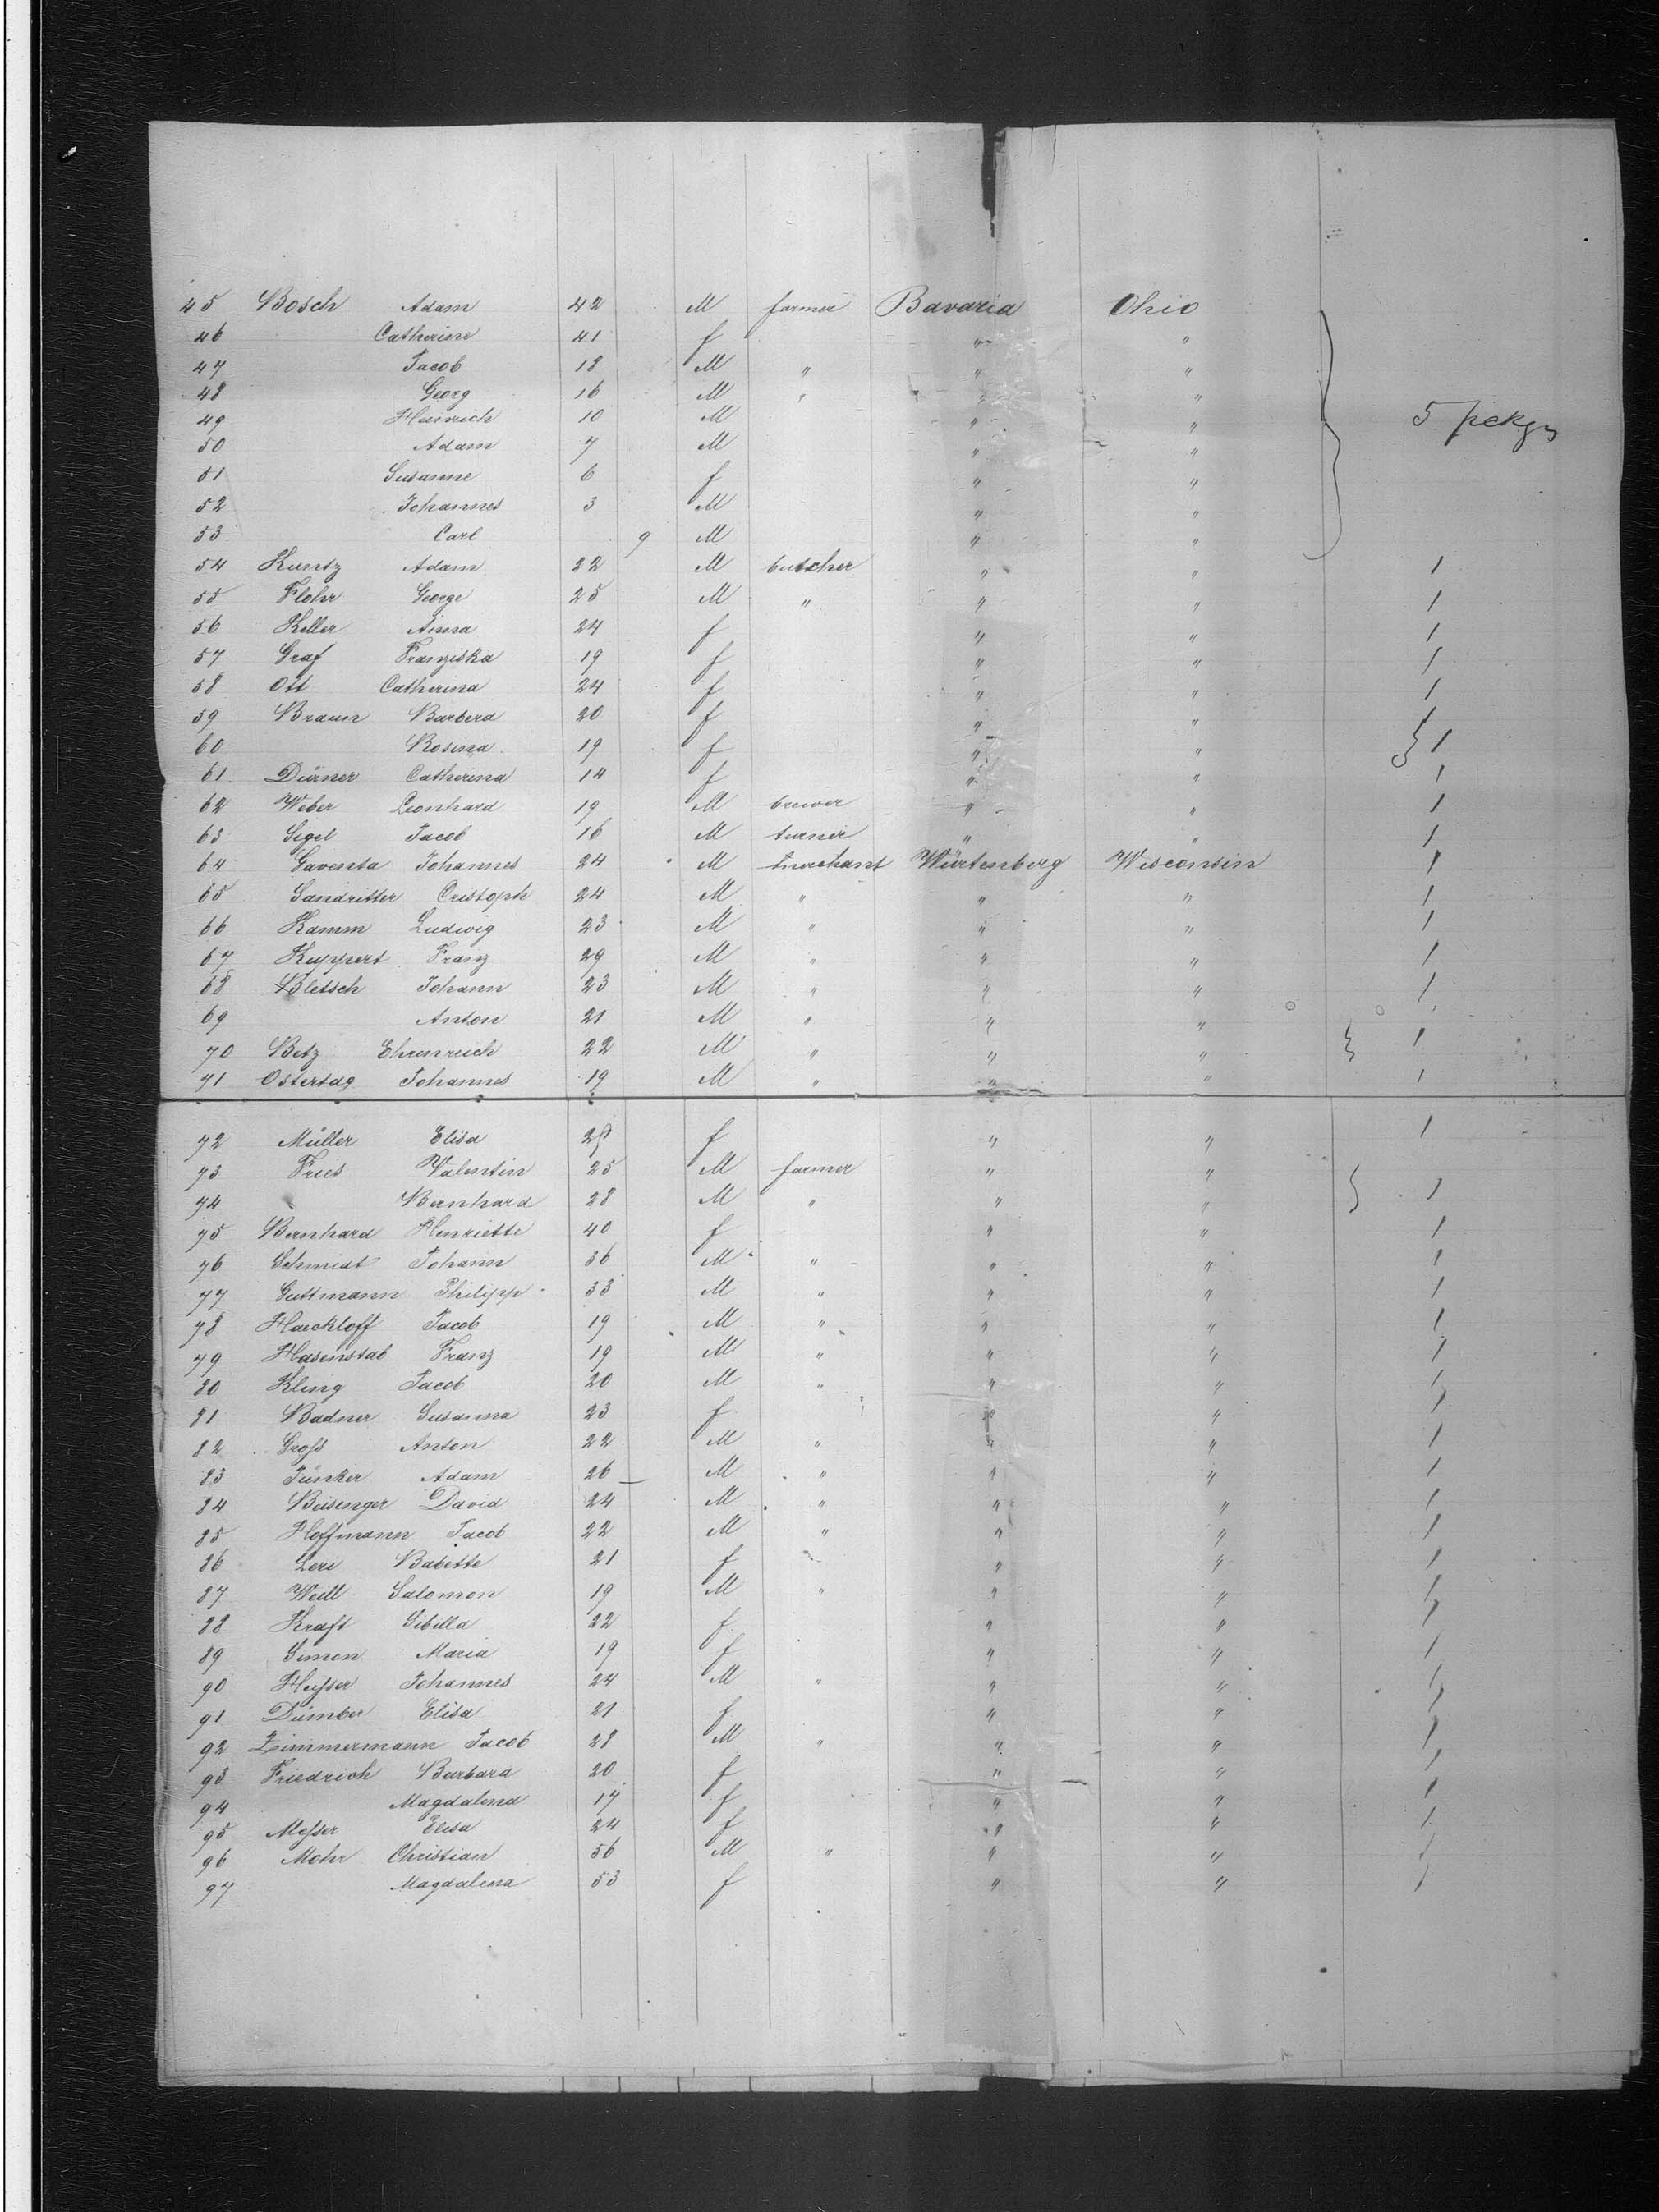 45 Bosch Adam 42 M farmer Bavaria Ohio
46 Catherine 41 f " "
47 Jacob 18 M " " "
48 Georg 16 M " " "
49 Heinrich 10 M " " 5 pckgs
50 Adam 7 M " "
51 Susanne 6 f " "
52 Johannes 3 M " "
53 Carl 9 M " "
54 Kuntz Adam 22 M butcher " " 1
55 Flohr George 25 M " " " 1
56 Keller Anna 24 f " " 1
57 Graf Franziska 19 f " " 1
58 Ott Catherina 24 f " " 1
59 Braun Barbera 20 f " "
60 Rosina 19 f " " 1
61 Dürner Catherina 14 f " " 1
62 Weber Leonhard 19 M brewer " " 1
63 Segel Jacob 16 M turner " " 1
64 Gaventa Johannes 24 M merchant Würtenberg Wisconsin 1
65 Sandritter Cristoph 24 M " " " 1
66 Kamm Ludwig 23 M " " " 1
67 Kuppert Franz 29 M " " " 1
68 Bletsch Johann 23 M " " " 1
69 Anton 21 M " " "
70 Betz Ehrenreich 22 M " " " 1
71 Ostertag Johannes 19 M " " " 1
72 Müller Elisa f " " 1
73 Fries Valentin 25 M farmer " "
74 Bernhard 28 M " " " 1
75 Bernhard Henriette 40 f " " 1
76 Schmidt Johann 36 M " " " 1
77 Guttmann Philipp 33 M " " " 1
78 Haeckloff Jacob 19 M " " " 1
79 Hasenstab Franz 19 M " " " 1
80 Kling Jacob 20 M " " " 1
81 Badner Susanna 23 f " " 1
82 Groß Anton 22 M " " " 1
83 Junker Adam 26 M " " " 1
84 Beisenger David 24 M " " " 1
85 Hoffmann Jacob 22 M " " " 1
86 Leri Babette 21 f " " 1
87 Weill Salomon 19 M " " " 1
88 Kraft Sibilla 22 f " " 1
89 Simon Maria 19 f " " 1
90 Heyser Johannes 24 M " " " 1
91 Dümber Elisa 21 f " " 1
92 Zimmermann Jacob 28 M " " " 1
93 Friedrich Barbara 20 f " " 1
94 Magdalena 17 f " " 1
95 Messer Elisa 24 f " " 1
96 Mohr Christian 56 M " " " 1
97 Magdalena 53 f " " 1